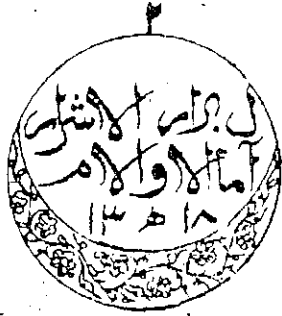 ٢
ل بزار الاشرار
آمالا والام
١٣ ھ ١٨